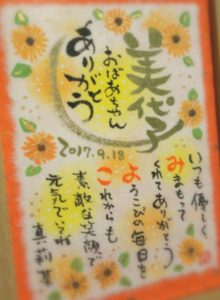 美代子
おばあちゃん
ありがとう
2017.9.18
いつも優しく
みまもって
くれてありがとう
よろこびの毎日を
これからも
素敵な笑顔で
元気でいてね
真莉菜